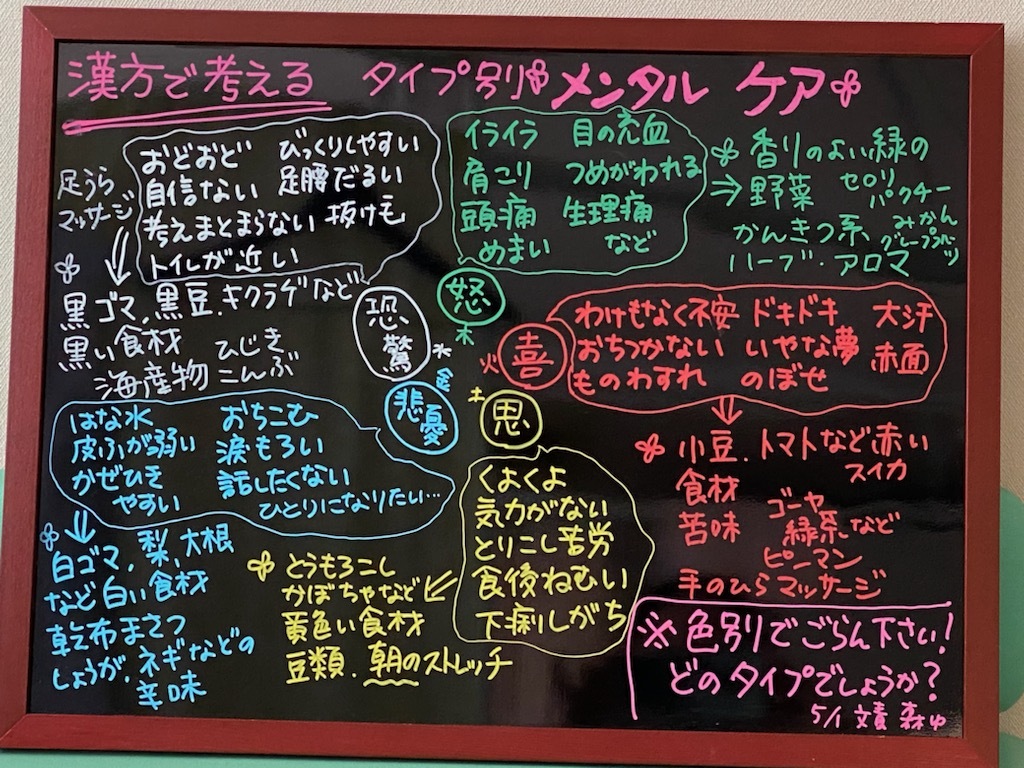 漢方で考える タイプ別 メンタル ケア
おどおど びっくりしやすい
自信ない 足腰だるい
考えまとまらない 抜け毛
トイレが近い
足うら
マッサージ
黒ゴマ、黒豆、キクラゲなど
黒い食材
ひじき
海産物 こんぶ
恐
驚
水
イライラ 目の充血
肩こり つめがわれる
頭痛 生理痛
めまい など
怒
木
香りのよい緑の
⇒野菜 セロリ
パクチー
かんきつ系、みかん
グレープフルーツ
ハーブ・アロマ
火
喜
わけもなく不安 ドキドキ 大汗
おちつかない いやな夢 赤面
ものわすれ のぼせ
小豆、トマトなど赤い
食材 スイカ
苦味 ゴーヤ
緑茶など
ピーマン
手のひらマッサージ
金
悲
憂
はな水 おちこむ
皮ふが弱い 涙もろい
かぜひき 話したくない
やすい ひとりになりたい…
白ゴマ、梨、大根
など白い食材
乾布まさつ
しょうが、ネギなどの
辛味
土
思
くよくよ
気力がない
とりこし苦労
食後ねむい
下痢しがち
とうもろこし
かぼちゃなど
黄色い食材
豆類、朝のストレッチ
※色別でごらん下さい!
どのタイプでしょうか?
5/1 文責 森ゆ